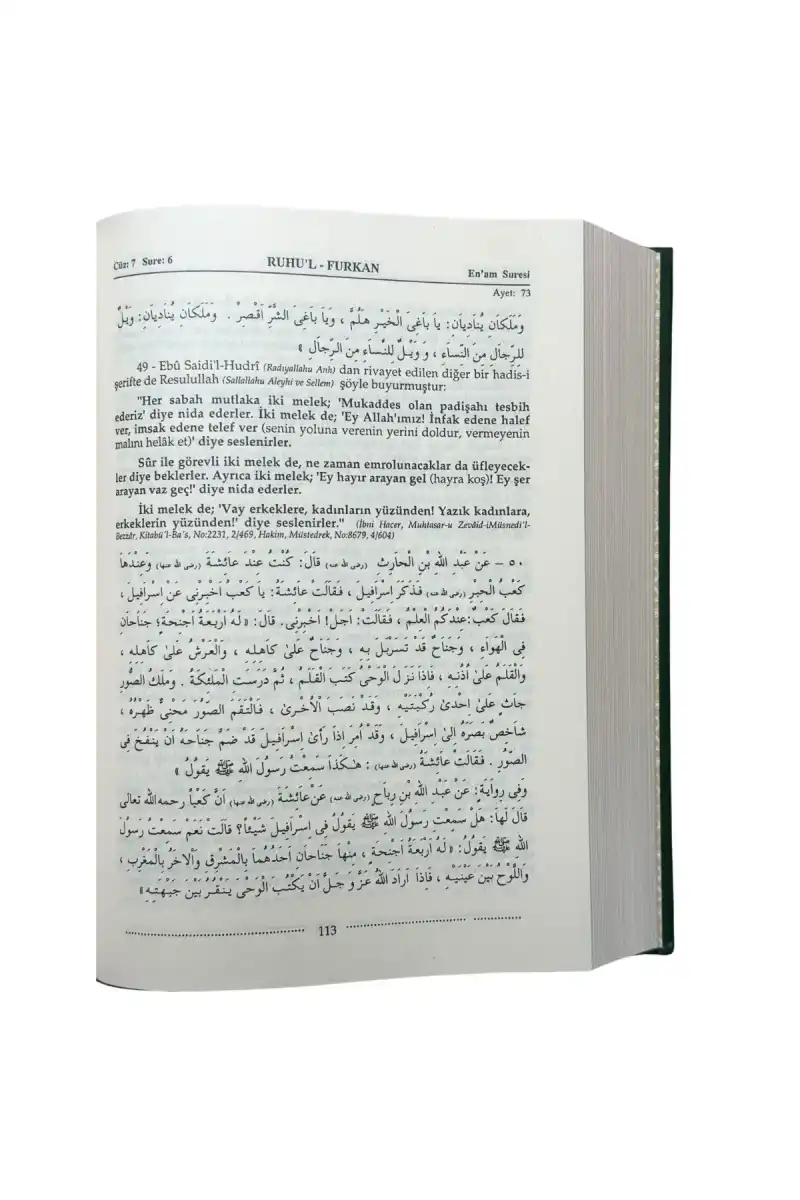 Cüz: 7 Sure: 6 RUHU'L - FURKAN En'am Suresi
Ayet: 73
وَمَلَكَانِ يُنَادِيَانِ: يَا بَاغِىَ الْخَيْرِ هَلُمَّ ، وَيَا بَاغِىَ الشَّرِّ اَقْصِرْ . وَمَلَكَانِ يُنَادِيَانِ: وَيْلٌ
لِلرِّجَالِ مِنَ النِّسَاءِ ، وَ وَيْلٌ لِلنِّسَاءِ مِنَ الرِّجَالِ »
49 - Ebû Saidi'l-Hudrî (Radıyallahu Anh) dan rivayet edilen diğer bir hadis-i
şerifte de Resulullah (Sallallahu Aleyhi ve Sellem) şöyle buyurmuştur:
"Her sabah mutlaka iki melek; 'Mukaddes olan padişahı tesbih
ederiz' diye nida ederler. İki melek de; 'Ey Allah'ımız! İnfak edene halef
ver, imsak edene telef ver (senin yoluna verenin yerini doldur, vermeyenin
malını helâk et)' diye seslenirler.
Sûr ile görevli iki melek de, ne zaman emrolunacaklar da üfleyecek-
ler diye beklerler. Ayrıca iki melek; 'Ey hayır arayan gel (hayra koş)! Ey şer
arayan vaz geç!' diye nida ederler.
İki melek de; 'Vay erkeklere, kadınların yüzünden! Yazık kadınlara,
erkeklerin yüzünden!' diye seslenirler." (İbni Hacer, Muhtasar-u Zevâid-iMüsnedi'l-
Bezzâr, Kitabü'l-Ba's, No:2231, 2/469, Hakim, Müstedrek, No:8679, 4/604)
٥٠ – عَنْ عَبْدِ اللهِ بْنِ الْحَارِثِ (رضى الله عنه) قَالَ: كُنْتُ عِنْدَ عَائِشَةَ (رضى الله عنها) وَعِنْدَهَا
كَعْبُ الْحَبْرِ (رضى الله عنه) فَذَكَرَ اِسْرَافِيلَ ، فَقَالَتْ عَائِشَةُ: يَا كَعْبُ اَخْبِرْنِى عَنْ اِسْرَافِيلَ ،
فَقَالَ كَعْبٌ:عِنْدَكُمُ الْعِلْمُ ، فَقَالَتْ: اَجَلْ! اَخْبِرْنِى. قَالَ: « لَهُ اَرْبَعَةُ اَجْنِحَةٍ؛ جَنَاحَانِ
فِى الْهَوَاءِ ، وَجَنَاحٌ قَدْ تَسَرْبَلَ بِهِ ، وَجَنَاحٌ عَلَىٰ كَاهِلِهِ ، وَالْعَرْشُ عَلَىٰ كَاهِلِهِ ،
وَالْقَلَمُ عَلَىٰ اُذُنِهِ ، فَاِذَا نَزَلَ الْوَحْىُ كَتَبَ الْقَلَمُ ، ثُمَّ دَرَسَتِ الْمَلٰئِكَةُ . وَمَلَكُ الصُّورِ
جَاثٍ عَلَىٰ اِحْدَىٰ رُكْبَتَيْهِ ، وَقَدْ نَصَبَ الْاُخْرَىٰ ، فَالْتَقَمَ الصُّورَ مَحْنِىٌّ ظَهْرُهُ ،
شَاخِصٌ بَصَرُهُ اِلَىٰ اِسْرَافِيلَ ، وَقَدْ اُمِرَ اِذَا رَأَىٰ اِسْرَافِيلَ قَدْ ضَمَّ جَنَاحَهُ اَنْ يَنْفُخَ فِى
الصُّورِ . فَقَالَتْ عَائِشَةُ (رضى الله عنها) : هٰكَذَا سَمِعْتُ رَسُولَ اللهِ ﷺ يَقُولُ »
وَفِى رِوَايَةٍ: عَنْ عَبْدِ اللهِ بْنِ رِبَاحٍ (رضى الله عنه) عَنْ عَائِشَةَ (رضى الله عنها) اَنَّ كَعْباً رحمه الله تعالى
قَالَ لَهَا: هَلْ سَمِعْتِ رَسُولَ اللهِ ﷺ يَقُولُ فِى اِسْرَافِيلَ شَيْئاً؟ قَالَتْ نَعَمْ سَمِعْتُ رَسُولَ
اللهِ ﷺ يَقُولُ: « لَهُ اَرْبَعَةُ اَجْنِحَةٍ ، مِنْهَا جَنَاحَانِ اَحَدُهُمَا بِالْمَشْرِقِ وَالْاٰخَرُ بِالْمَغْرِبِ ،
وَاللَّوْحُ بَيْنَ عَيْنَيْهِ ، فَاِذَا اَرَادَ اللهُ عَزَّ وَجَلَّ اَنْ يَكْتُبَ الْوَحْىَ يَنْقُرُ بَيْنَ جَبْهَتِهِ »
113